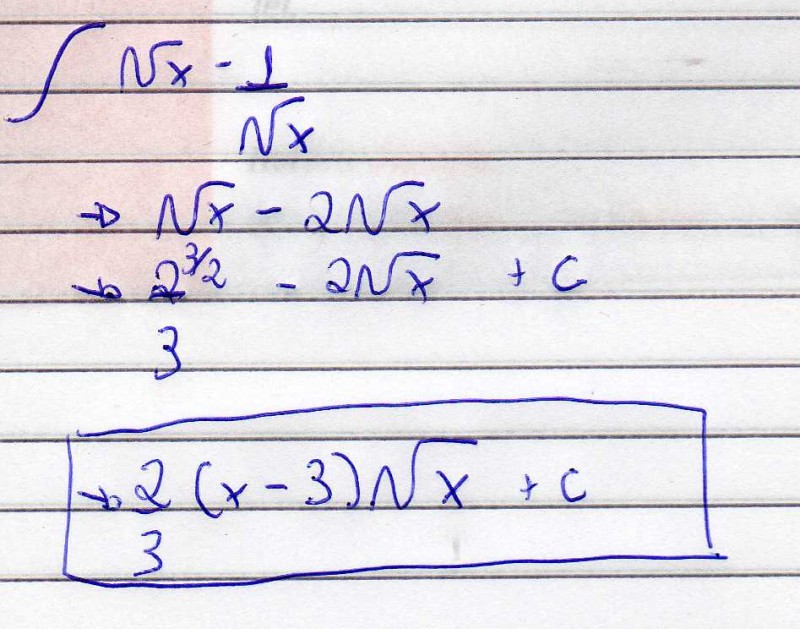 ∫ √x - 1/√x
→ √x - 2√x
→ 2^3/2 / 3 - 2√x + C
→ 2/3 (x - 3)√x + C